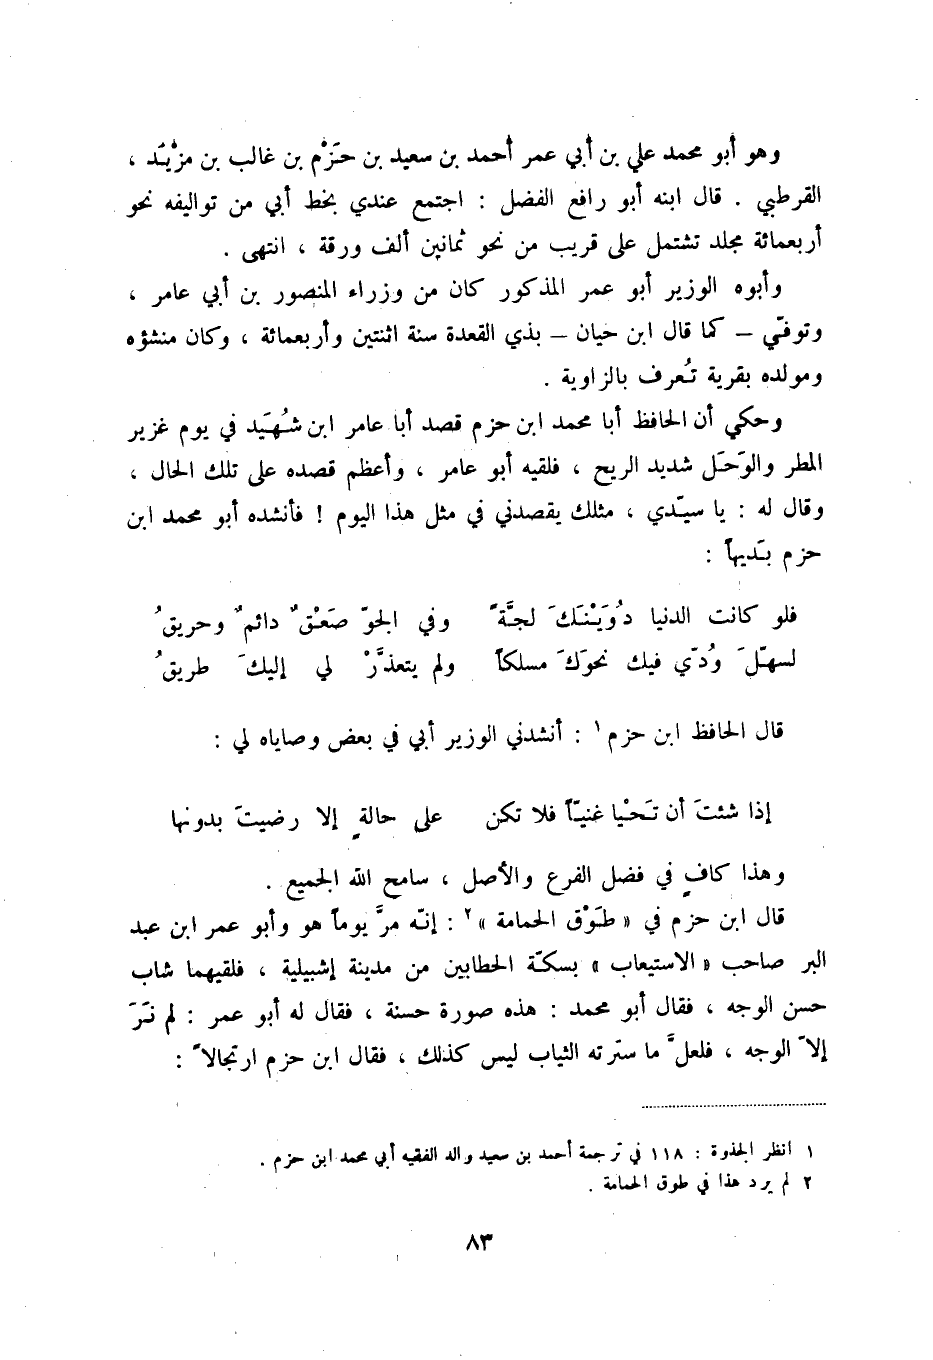 وهو أبو محمد علي بن أبي عمر أحمد بن سعيد بن حَزْم بن غالب بن مزْيَد ،
القرطبي . قال ابنه أبو رافع الفضل : اجتمع عندي بخط أبي من تواليفه نحو
أربعمائة مجلد تشتمل على قريب من نحو ثمانين ألف ورقة ، انتهى .
وأبوه الوزير أبو عمر المذكور كان من وزراء المنصور بن أبي عامر ،
وتوفّي – كما قال ابن حيان – بذي القعدة سنة اثنتين وأربعمائة ، وكان منشؤه
ومولده بقرية تُعرف بالزاوية .
وحكي أن الحافظ أبا محمد ابن حزم قصد أبا عامر ابن شُهَيد في يوم غزير
المطر والوَحَل شديد الريح ، فلقيه أبو عامر ، وأعظم قصده على تلك الحال ،
وقال له : يا سيّدي ، مثلك يقصدني في مثل هذا اليوم ! فأنشده أبو محمد ابن
حزم بَديهاً :
فلو كانت الدنيا دُوَيْنَكَ لجَّةً وفي الجوّ صَعْقٌ دائمٌ وحريقُ
لسهّلَ وُدّي فيك نحوَكَ مسلكاً ولم يتعذَّرْ لي إليكَ طريقُ
قال الحافظ ابن حزم١ : أنشدني الوزير أبي في بعض وصاياه لي :
إذا شئتَ أن تَحْيا غنيّاً فلا تكن على حالةٍ إلا رضيتَ بدونها
وهذا كافٍ في فضل الفرع والأصل ، سامح الله الجميع .
قال ابن حزم في « طَوْق الحمامة »٢ : إنّه مرَّ يوماً هو وأبو عمر ابن عبد
البر صاحب « الاستيعاب » بسكّة الحطابين من مدينة إشبيلية ، فلقيهما شاب
حسن الوجه ، فقال أبو محمد : هذه صورة حسنة ، فقال له أبو عمر : لم نَرَ
إلاّ الوجه ، فلعلَّ ما سترته الثياب ليس كذلك ، فقال ابن حزم ارتجالاً :
١ انظر الجذوة : ١١٨ في ترجمة أحمد بن سعيد والد الفقيه أبي محمد ابن حزم .
٢ لم يرد هذا في طوق الحمامة .
٨٣